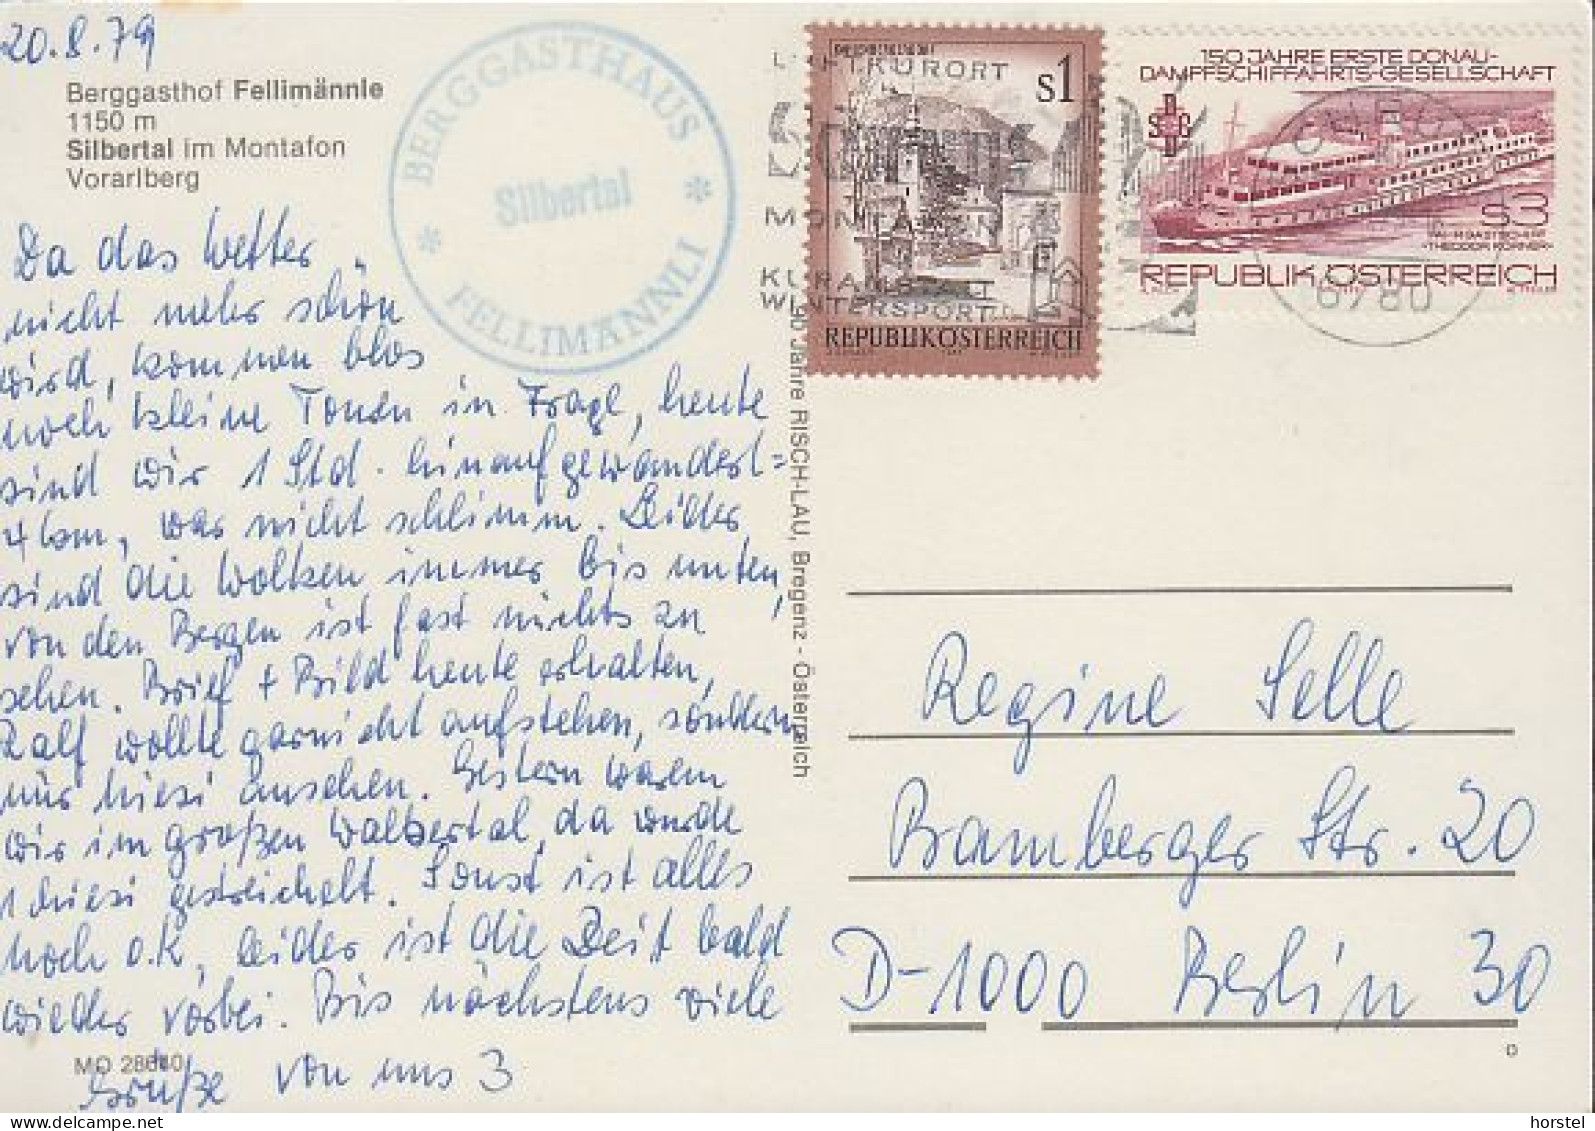 20.8.79
Berggasthof Fellimännle
1150 m
Silbertal im Montafon
Vorarlberg
BERGGASTHAUS
Silbertal
* FELLIMÄNNLI *
Da das Wetter
nicht mehr schön
wird, kommen blos
noch kleine Touren in Frage, heute
sind wir 1 Std. hinaufgewandert =
4 km, war nicht schlimm. Leider
sind die Wolken immer bis unten,
von den Bergen ist fast nichts zu
sehen. Brief + Bild heute erhalten,
Ralf wollte garnicht aufstehen, sondern
nur miesi ansehen. Gestern waren
wir im großen Walsertal, da wurde
1 miesi gestreichelt. Sonst ist alles
noch o.K, leider ist die Zeit bald
wieder vorbei. Bis nächstens viele
Grüße von uns 3
MO 28640
90 Jahre RISCH-LAU, Bregenz - Österreich
LUFTKURORT
MONTAFON
KURANSTALT
WINTERSPORT
S1
REPUBLIK ÖSTERREICH
150 JAHRE ERSTE DONAU-
DAMPFSCHIFFAHRTS-GESELLSCHAFT
S3
FAHRGASTSCHIFF
»THEODOR KÖRNER«
REPUBLIK ÖSTERREICH
6780
Regine Selle
Bamberger Str. 20
D-1000 Berlin 30
horstel